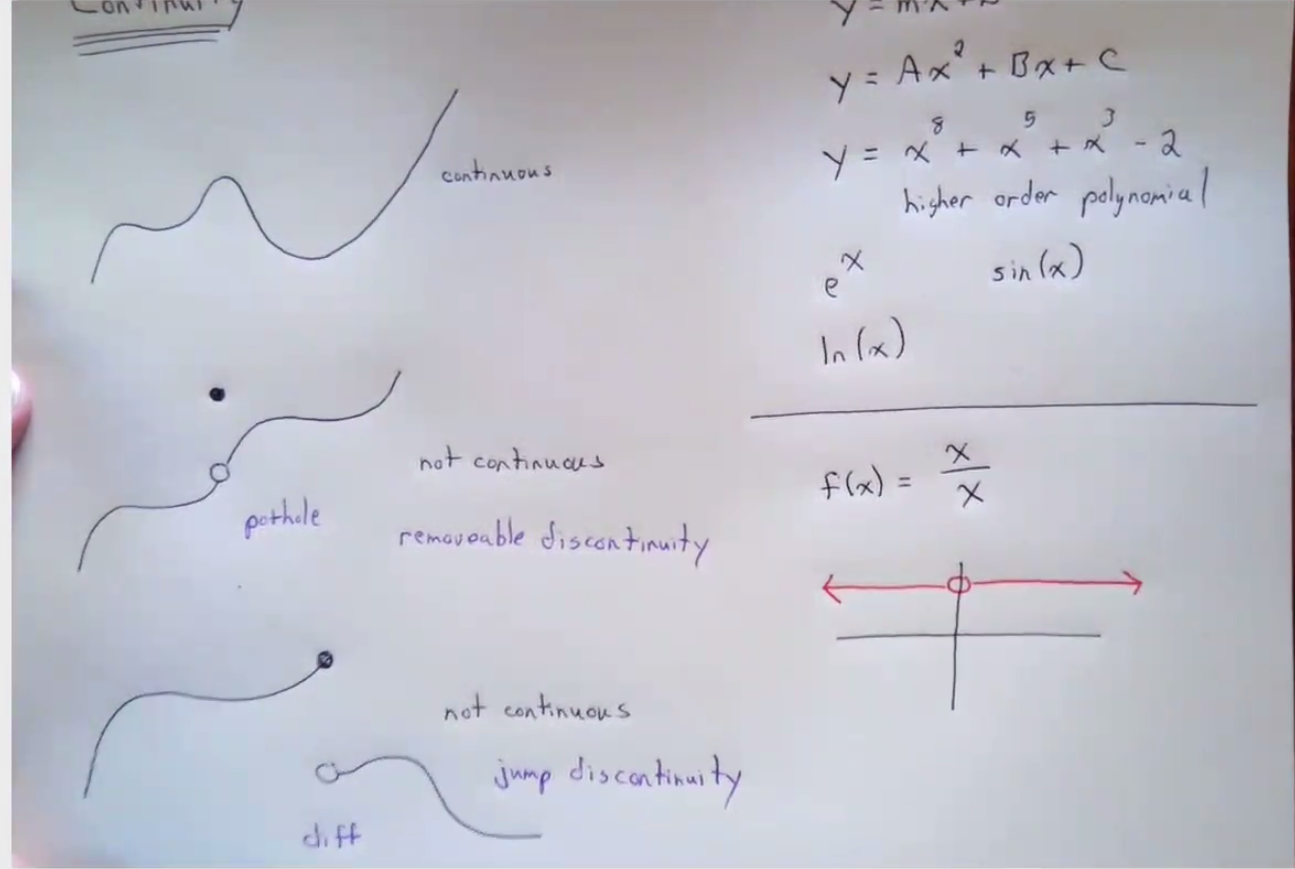 Continuity
continuous
not continuous
pothole
removeable discontinuity
not continuous
jump discontinuity
diff
y = Ax² + Bx + C
y = x⁸ + x⁵ + x³ - 2
higher order polynomial
eˣ sin(x)
ln(x)
f(x) = x/x